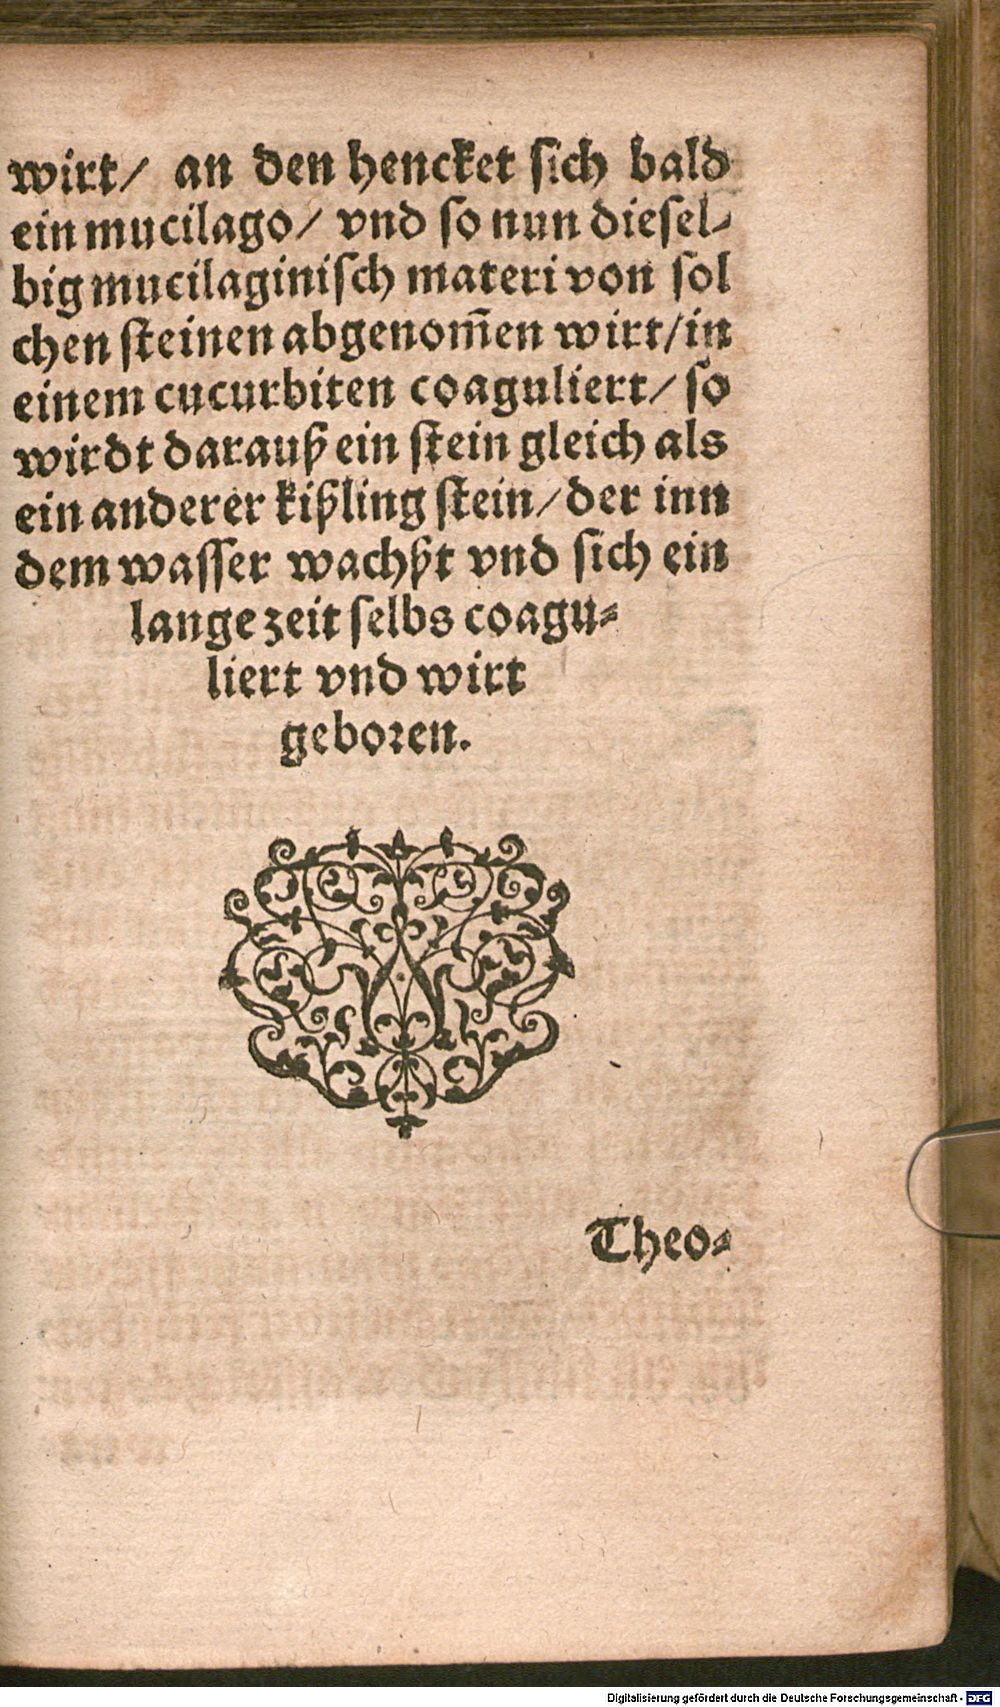 wirt/ an den hencket sich bald
ein mucilago/ vnd so nun diesel-
big mucilaginisch materi von sol
chen steinen abgenom̃en wirt/ in
einem cucurbiten coaguliert/ so
wirdt darauß ein stein gleich als
ein anderer kißling stein/ der inn
dem wasser wachßt vnd sich ein
lange zeit selbs coagu-
liert vnd wirt
geboren.
Theo-
Digitalisierung gefördert durch die Deutsche Forschungsgemeinschaft - DFG